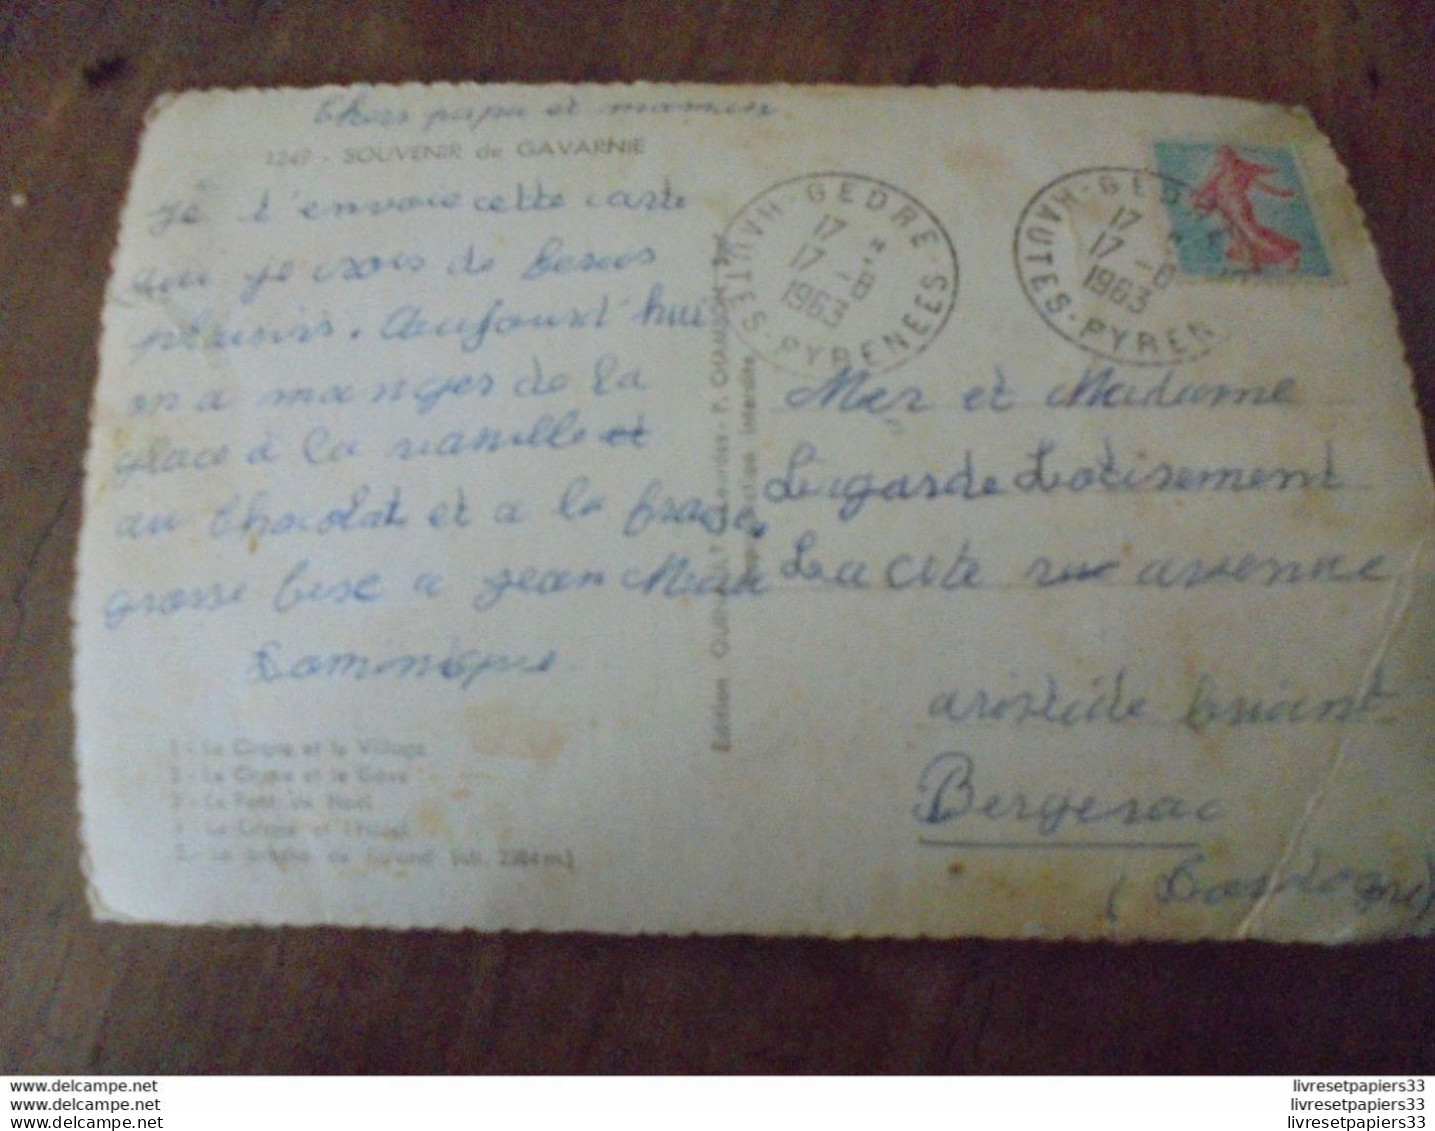 Chers papa et maman
1249 - SOUVENIR de GAVARNIE
je t'envoie cette carte
qui je crois de beaus
plaisirs. Aujourd'hui
on a manger de la
glace à la vanille et
au Chocolat et a la fraise,
grosse bise a jean Mau
Dominique
1 - Le Cirque et le Village
2 - Le Cirque et le Gave
3 - Le Pont de
4 - Le Cirque et l'Hôtel
5 - La brèche de Roland (alt. 2804 m.)
Edition P. CHANSON
Reproduction interdite
GEDRE
17 H
17 -8
1963
HAUTES-PYRENEES
GEDRE
17
17 -8
1963
HAUTES-PYREN
Mer et Madame
Lagarde Lotisement
La cité rue avenue
aristide briant
Bergerac
(Dordogne)
www.delcampe.net
www.delcampe.net
www.delcampe.net
livresetpapiers33
livresetpapiers33
livresetpapiers33